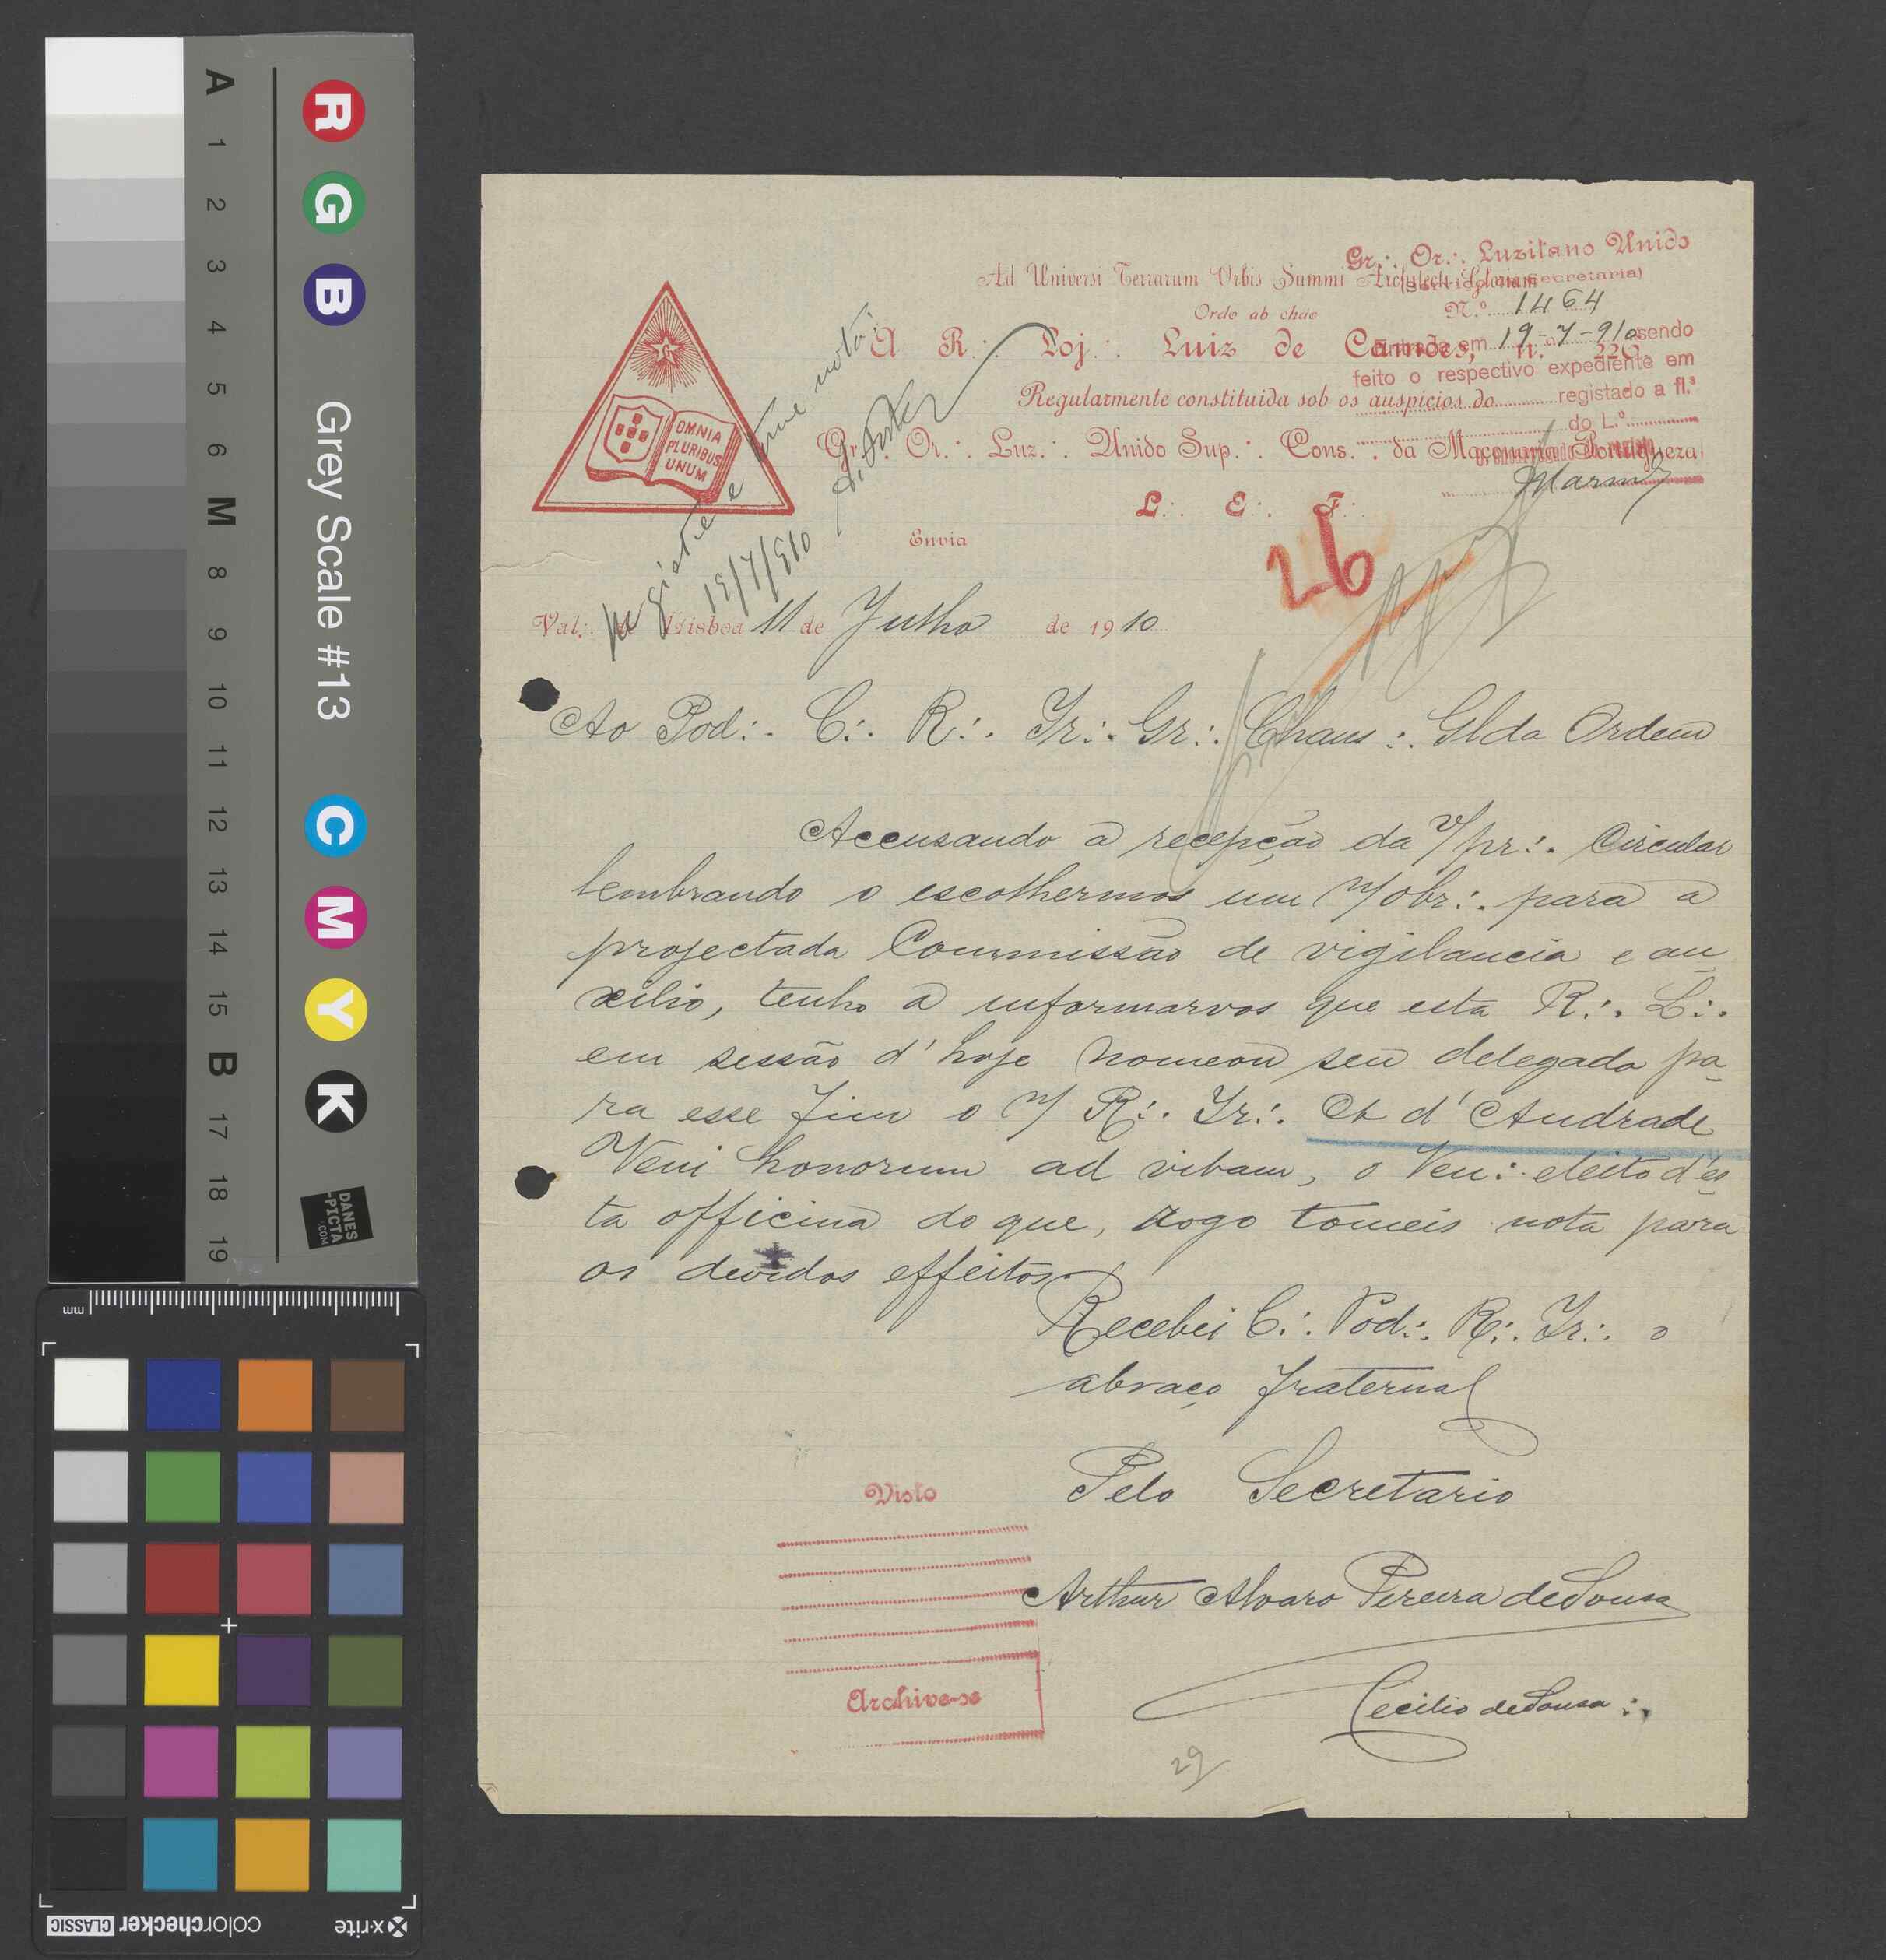 Gr∴ Or∴ Luzitano Unido
Ad Universi Terrarum Orbis Summi Architecti Gloriam
(Serviço da Secretaria)
Ordo ab chao
N.º 1464
Entrada em 19-7-910 sendo
A R∴ Loj∴ Luiz de Camões, n.º 226
feito o respectivo expediente em
registado a fl.ª
Regularmente constituida sob os auspicios do
do L.º
Gr∴ Or∴ Luz∴ Unido Sup∴ Cons∴ da Maçonaria Portugueza
L∴ E∴ F∴
OMNIA
PLURIBUS
UNUM
Registe e tome nota
19/7/910
Envia
26
Val∴ de Lisboa 11 de Julho de 1910
Ao Pod∴ C∴ R∴ Ir∴ Gr∴ Chans∴ Gl da Ordem
Accusando a recepção da v/ pr∴ Circular
lembrando o escolhermos um n/ obr∴ para a
projectada Commissão de vigilancia e au
xilio, tenho a informarvos que esta R∴ L∴
em sessão d'hoje nomeou seu delegado pa-
ra esse fim o n/ R∴ Ir∴ A d'Andrade
Veni honorum ad vitam, o Ven∴ eleito d'es-
ta officina do que, rogo tomeis nota para
os devidos effeitos
Recebei C∴ Pod∴ R∴ Ir∴ o
abraço fraternal
Pelo Secretario
Visto
Arthur Alvaro Pereira de Sousa
Archive-se
Cecilio de Sousa∴
29
A
1
2
3
4
5
6
M
8
9
10
11
12
13
14
15
B
17
18
19
R
G
B
Grey Scale #13
C
M
Y
K
DANES
-PICTA
.COM
mm
x-rite
colorchecker CLASSIC